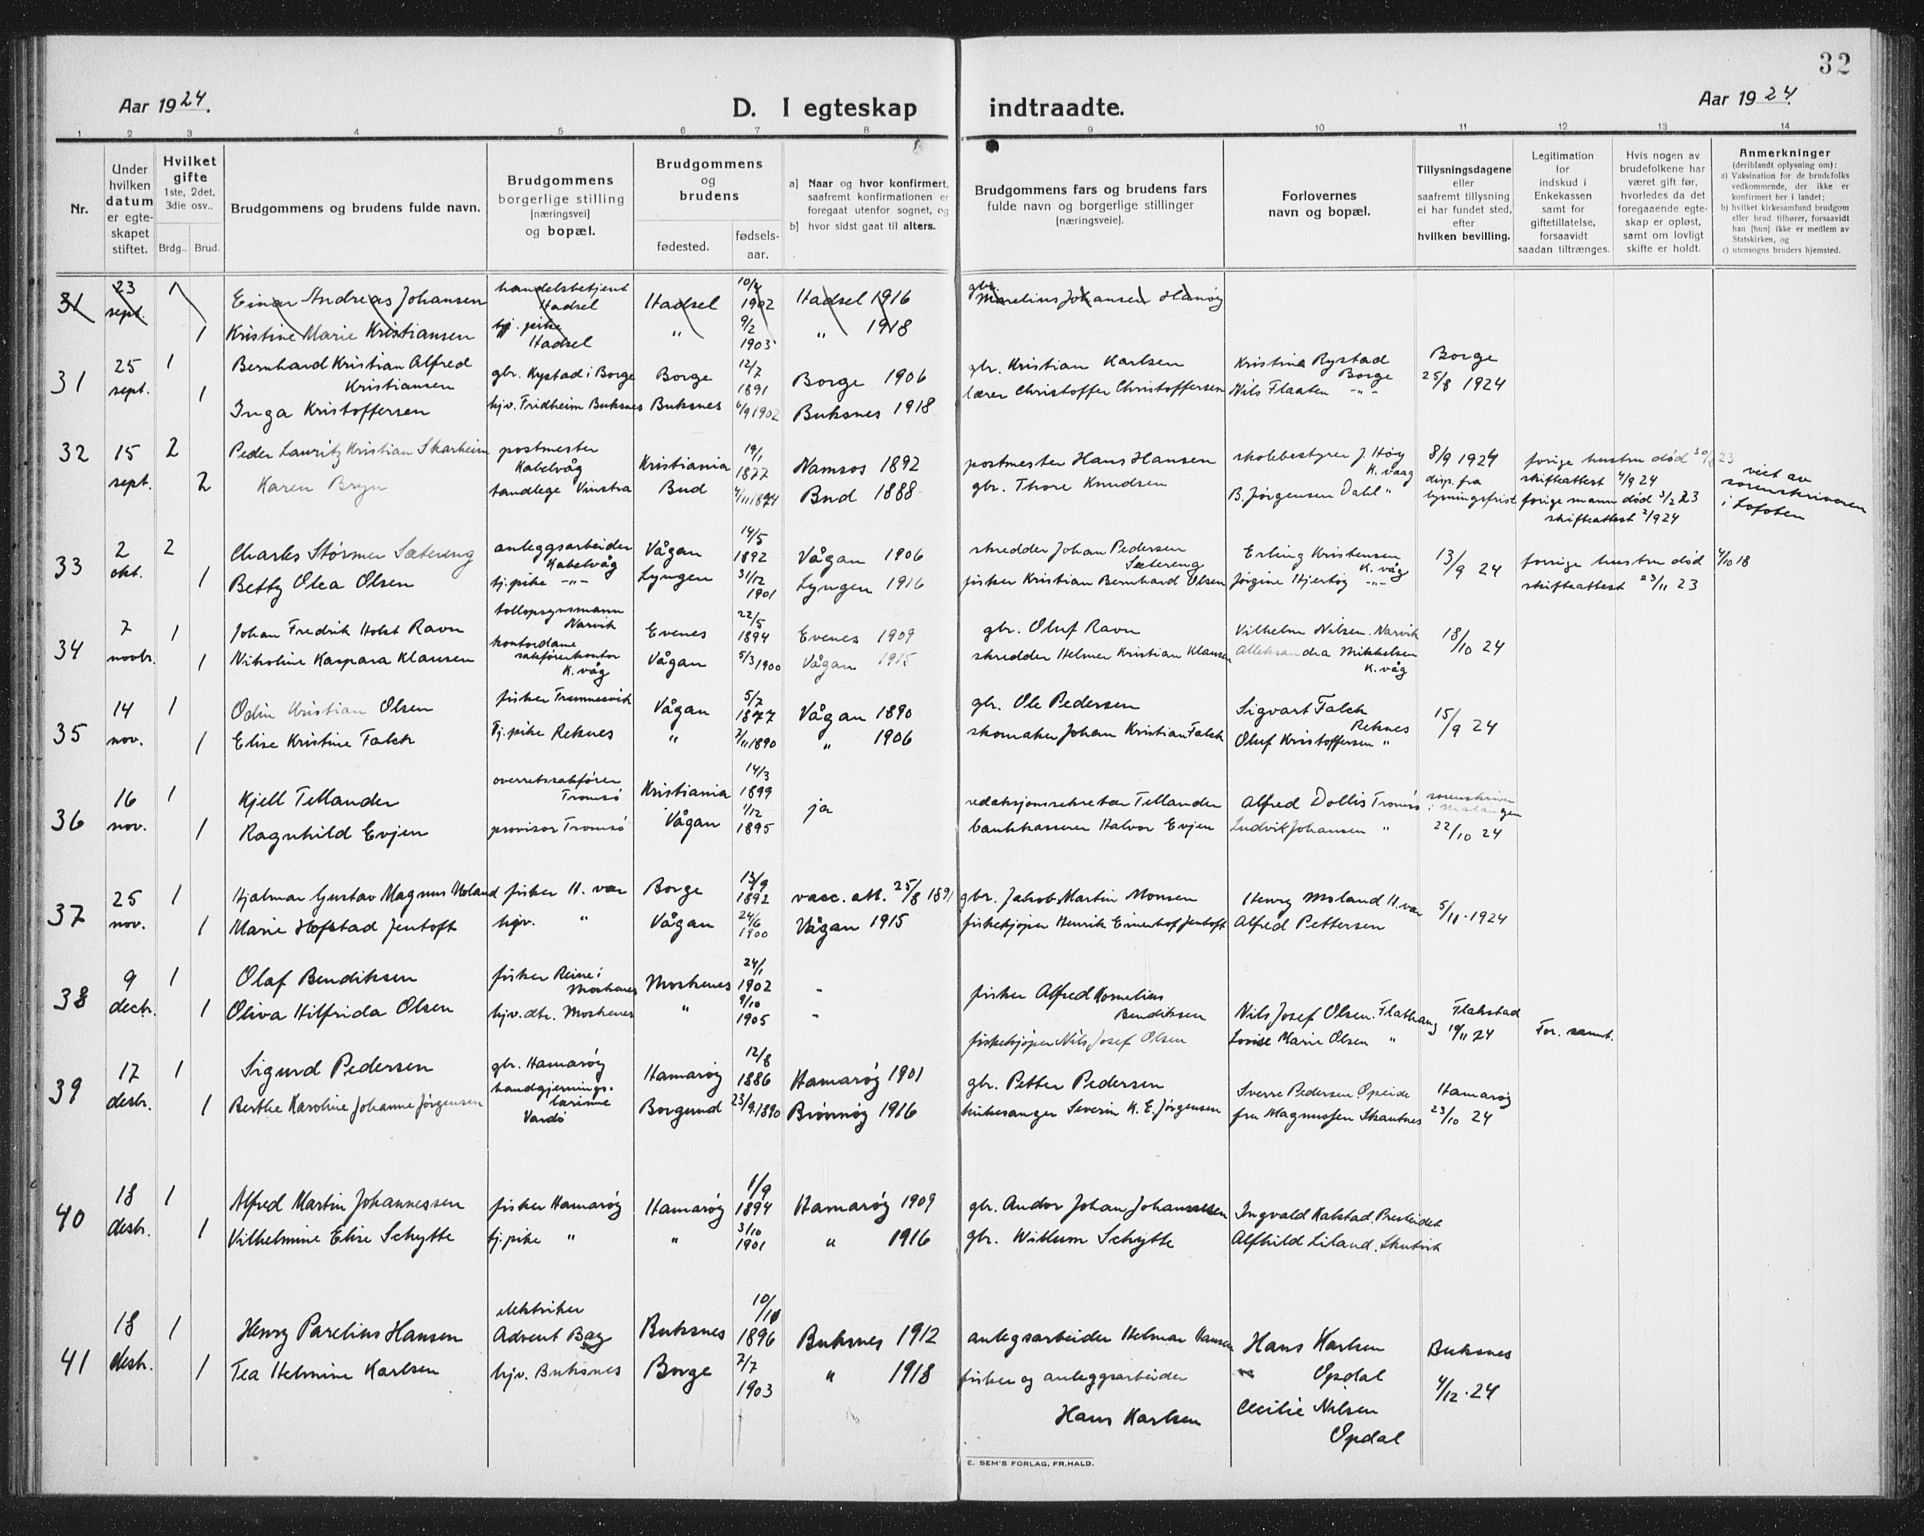 32
Aar 1924.
D. I egteskap indtraadte.
Aar 1924.
1 2 3 4 5 6 7 8 9 10 11 12 13 14
Nr.
Under hvilken datum er egteskapet stiftet.
Hvilket gifte 1ste, 2det, 3die osv..
Brdg.. Brud.
Brudgommens og brudens fulde navn.
Brudgommens borgerlige stilling [næringsvei] og bopæl.
Brudgommens og brudens
fødested.
fødsels-aar.
a] Naar og hvor konfirmert, saafremt konfirmationen er foregaat utenfor sognet, og
b] hvor sidst gaat til alters.
Brudgommens fars og brudens fars fulde navn og borgerlige stillinger [næringsveie].
Forlovernes navn og bopæl.
Tillysningsdagene eller saafremt tillysning ei har fundet sted, efter hvilken bevilling.
Legitimation for indskud i Enkekassen samt for giftetillatelse, forsaavidt saadan tiltrænges.
Hvis nogen av brudefolkene har været gift før, hvorledes da det foregaaende egteskap er opløst, samt om lovligt skifte er holdt.
Anmerkninger (deriblandt oplysning om):
a) Vaksination for de brudefolks vedkommende, der ikke er konfirmert her i landet;
b) hvilket kirkesamfund brudgom eller brud tilhører, forsaavidt han [hun] ikke er medlem av Statskirken, og
c) utensogns bruders hjemsted.
31 23 sept. 1 Einar Andreas Johansen handelsbetjent Hadsel Hadsel 10/4 1902 Hadsel 1916 gbr. Marelius Johansen Hanøy
1 Kristine Marie Kristiansen tj. pike Hadsel " 9/2 1903 " 1918
31 25 sept. 1 Bernhard Kristian Alfred Kristiansen gbr. Rystad i Borge Borge 12/7 1891 Borge 1906 gbr. Kristian Karlsen Kristina Rystad Borge Borge 25/8 1924
1 Inga Kristoffersen hjv. Fridheim Buksnes Buksnes 6/9 1902 Buksnes 1918 lærer Christoffer Christoffersen Nils Flaaten -"-
32 15 sept. 2 Peder Lauritz Kristian Skarheim postmester Kabelvåg Kristiania 19/1 1877 Namsos 1892 postmester Hans Hansen skolebestyrer J. Høy K. vaag 8/9 1924 disp. fra lysningsfrist forige hustru død 23 skifteattest 4/9 24 viet av sorenskriveren i Lofoten
2 Karen Bryn tandlege Vinstra Bud 4/11 1874 Bud 1888 gbr. Thore Knudsen B. Jørgensen Dahl " forige mann død 3/2 23 skifteattest 2/9 24
33 2 okt. 2 Charles Størmer Sætereng anleggsarbeider Kabelvåg Vågan 14/5 1892 Vågan 1906 skredder Johan Pedersen Sætereng Erling Kristensen K. våg 13/9 24 forrige hustru død 4/10 18 skifteattest 23/11 23
1 Betty Olea Olsen tj. pike -"- Lyngen 31/12 1901 Lyngen 1916 fisker Kristian Bernhard Olsen Jørgine Hjertøy -"-
34 7 novbr. 1 Johan Fredrik Holst Ravn tollopsynsmann Narvik Evenes 22/5 1894 Evenes 1909 gbr. Oluf Ravn Vilhelm Nilsen. Narvik 18/10 24
1 Nikoline Kaspara Klausen kontordame sakførerkontor K. våg Vågan 5/3 1900 Vågan 1915 skredder Helmer Kristian Klausen Alleksandra Mikkelsen K. våg
35 14 nov. 1 Odin Kristian Olsen fisker Fremnesvik Vågan 5/7 1877 Vågan 1890 gbr. Ole Pedersen Sigvart Falch Reknes 15/9 24
1 Elise Kristine Falch tj. pike Reknes " 2/11 1890 " 1906 skomaker Johan Kristian Falch Oluf Kristoffersen "
36 16 nov. 1 Kjell Tellander overretssakfører Tromsø Kristiania 14/3 1899 ja redaksjonssekretær Tellander Alfred Dollis Tromsø sorenskriver i Malangen 22/10 24
1 Ragnhild Evjen provisor Tromsø Vågan 1/12 1895 bankkasserer Halvor Evjen Ludvik Johansen "
37 25 nov. 1 Hjalmar Gustav Magnus Moland fisker H. vær Borge 13/9 1892 vacc. att. 25/8 1891 gbr. Jakob Martin Monsen Henry Moland H. vær 5/11. 1924
1 Marie Hofstad Jentoft hjv. " Vågan 24/6 1900 Vågan 1915 fiskekjøper Henrik Einerhof Jentoft Alfred Pettersen
38 9 decbr. 1 Olaf Bendiksen fisker Reine i Moskenes Moskenes 24/1 1902 - fisker Alfred Kornelius Bendiksen Nils Josef Olsen. Flathaug Flakstad 19/11 24 For. samt.
1 Oliva Hilfrida Olsen hjv. dtr. Moskenes " 9/10 1905 - fiskekjøper Nils Josef Olsen Lovise Marie Olsen "
39 17 desbr. 1 Sigurd Pedersen gbr. Hamarøy Hamarøy 12/8 1886 Hamarøy 1901 gbr. Petter Pedersen Sverre Pedersen. Opeide Hamarøy 23/10 24
1 Berthe Karoline Johanne Jørgensen handgjerningslærinne Vardø Borgund 23/9. 1890 Brønnøy 1916 kirkesanger Severin K. E. Jørgensen fru Magnussen Skautnes
40 18 desbr. 1 Alfred Martin Johannessen fisker Hamarøy Hamarøy 1/9 1894 Hamarøy 1909 gbr. Andor Johan Johannessen Ingvald Kalstad. Presteidet
1 Vilhelmine Elise Schytte tj. pike " " 3/10 1901 " 1916 gbr. Willum Schytte Alfhild Liland. Skutvik
41 18 desbr. 1 Henry Parelius Hansen elektriker Advent Bay Buksnes 10/10 1896 Buksnes 1912 anlegsarbeider Helmar Hansen Hans Karlsen Opdal Buksnes 4/12. 24
1 Tea Helmine Karlsen hjv. Buksnes Borge 7/7 1903 " 1918 fisker og anleggsarbeider Hans Karlsen Cecilie Nilsen Opdal
E. SEM'S FORLAG, FR.HALD.